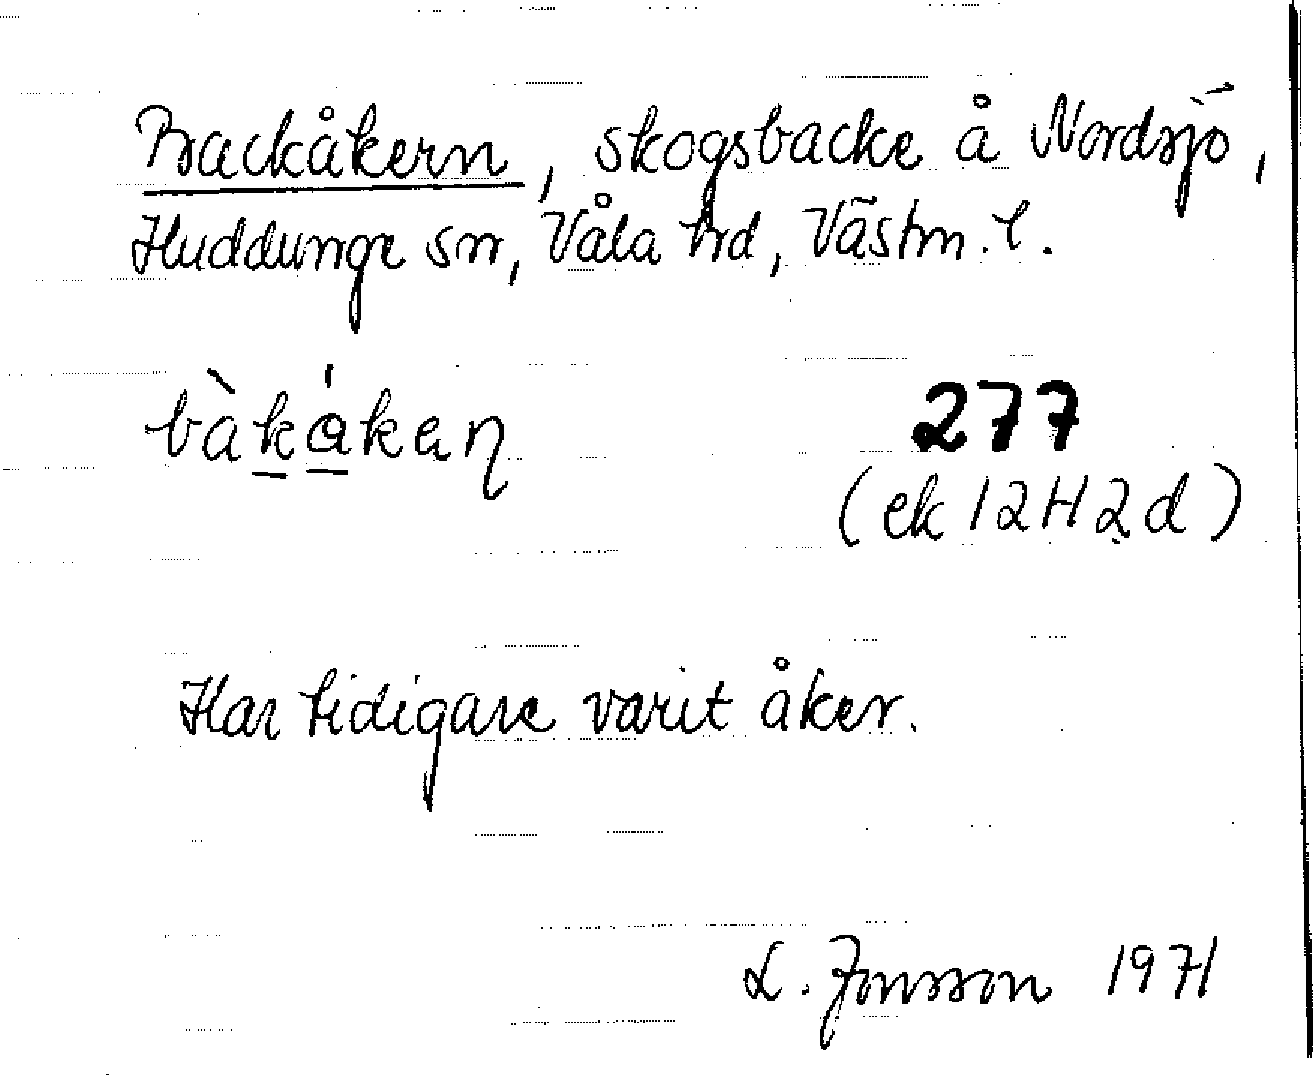 Backåkern, skogsbacke å Nordsjö,
Huddunge sn, Våla hrd, Västm. l.
bàkákaɳ
277
(ek 12H2d)
Har tidigare varit åker.
L. Jonsson 1971